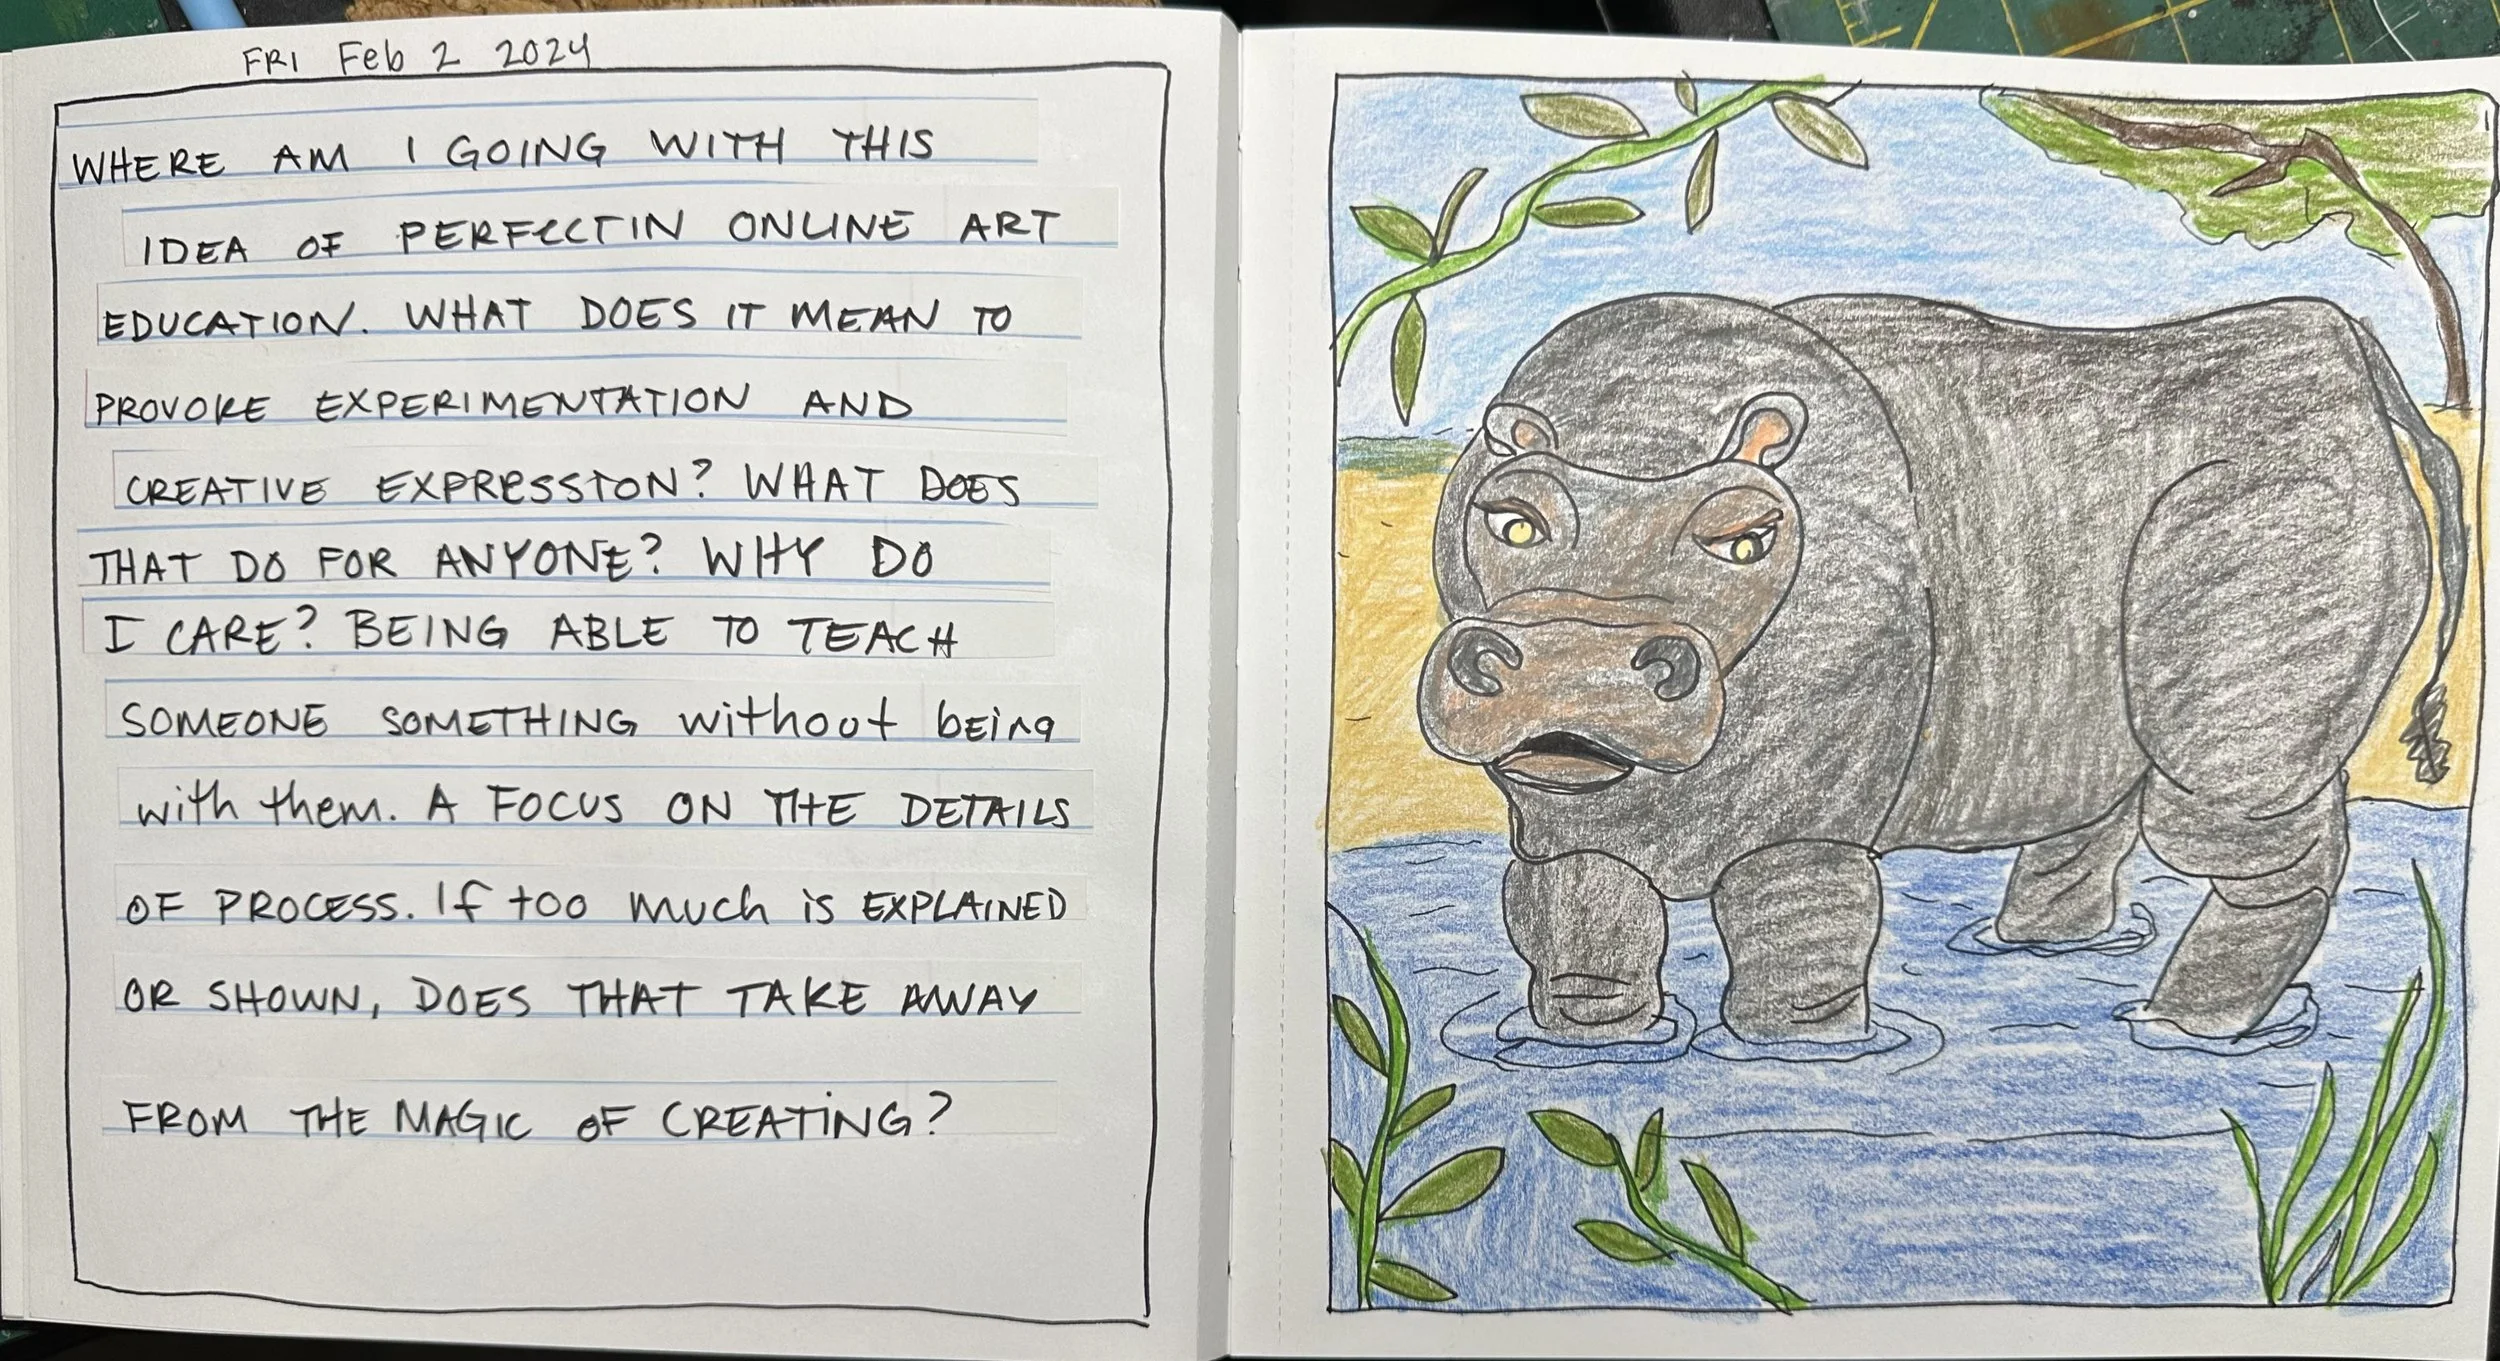 FRI Feb 2 2024
WHERE AM I GOING WITH THIS
IDEA OF PERFECTIN ONLINE ART
EDUCATION. WHAT DOES IT MEAN TO
PROVOKE EXPERIMENTATION AND
CREATIVE EXPRESSION? WHAT DOES
THAT DO FOR ANYONE? WHY DO
I CARE? BEING ABLE TO TEACH
SOMEONE SOMETHING without being
with them. A FOCUS ON THE DETAILS
OF PROCESS. If too much is EXPLAINED
OR SHOWN, DOES THAT TAKE AWAY
FROM THE MAGIC OF CREATING?